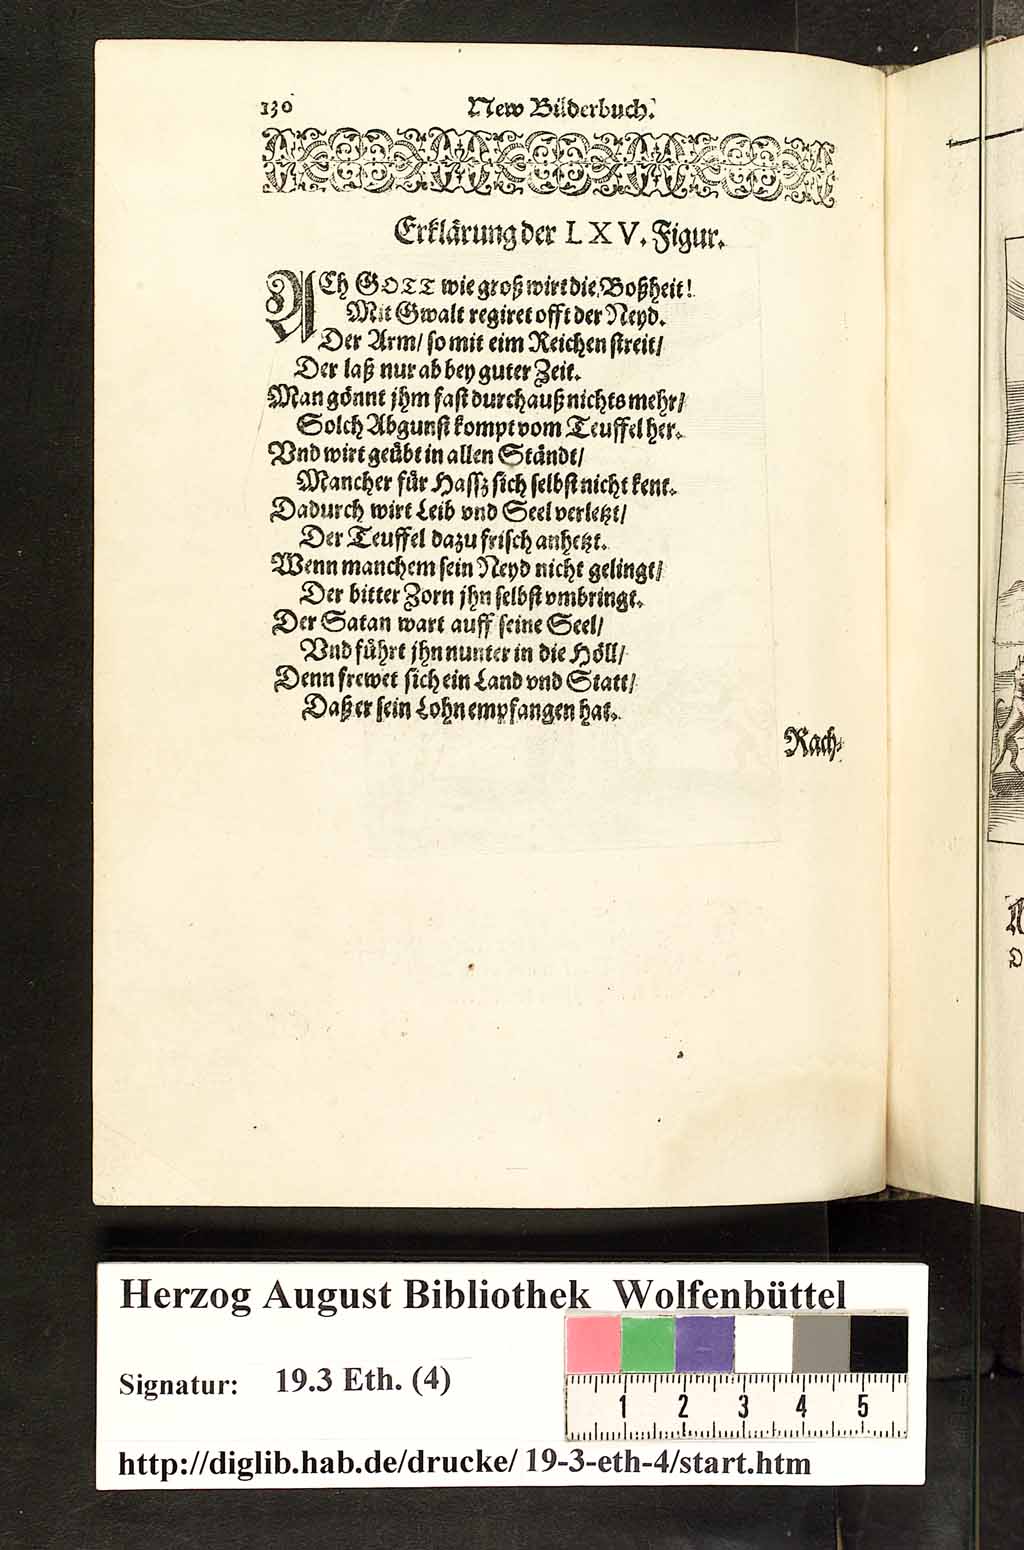 130
New Bilderbuch.
Erklärung der LXV. Figur.
ACh GOTT wie groß wirt die Boßheit!
Mit Gwalt regiret offt der Neyd.
Der Arm/ so mit eim Reichen streit/
Der laß nur ab bey guter Zeit.
Man gönnt jhm fast durchauß nichts mehr/
Solch Abgunst kompt vom Teuffel her.
Vnd wirt geübt in allen Ständt/
Mancher für Hassz sich selbst nicht kent.
Dadurch wirt Leib vnd Seel verletzt/
Der Teuffel dazu frisch anhetzt.
Wenn manchem sein Neyd nicht gelingt/
Der bitter Zorn jhn selbst vmbringt.
Der Satan wart auff seine Seel/
Vnd führt jhn nunter in die Höll/
Denn frewet sich ein Land vnd Statt/
Daß er sein Lohn empfangen hat.
Rach-
Herzog August Bibliothek Wolfenbüttel
Signatur: 19.3 Eth. (4)
1 2 3 4 5
http://diglib.hab.de/drucke/ 19-3-eth-4/start.htm